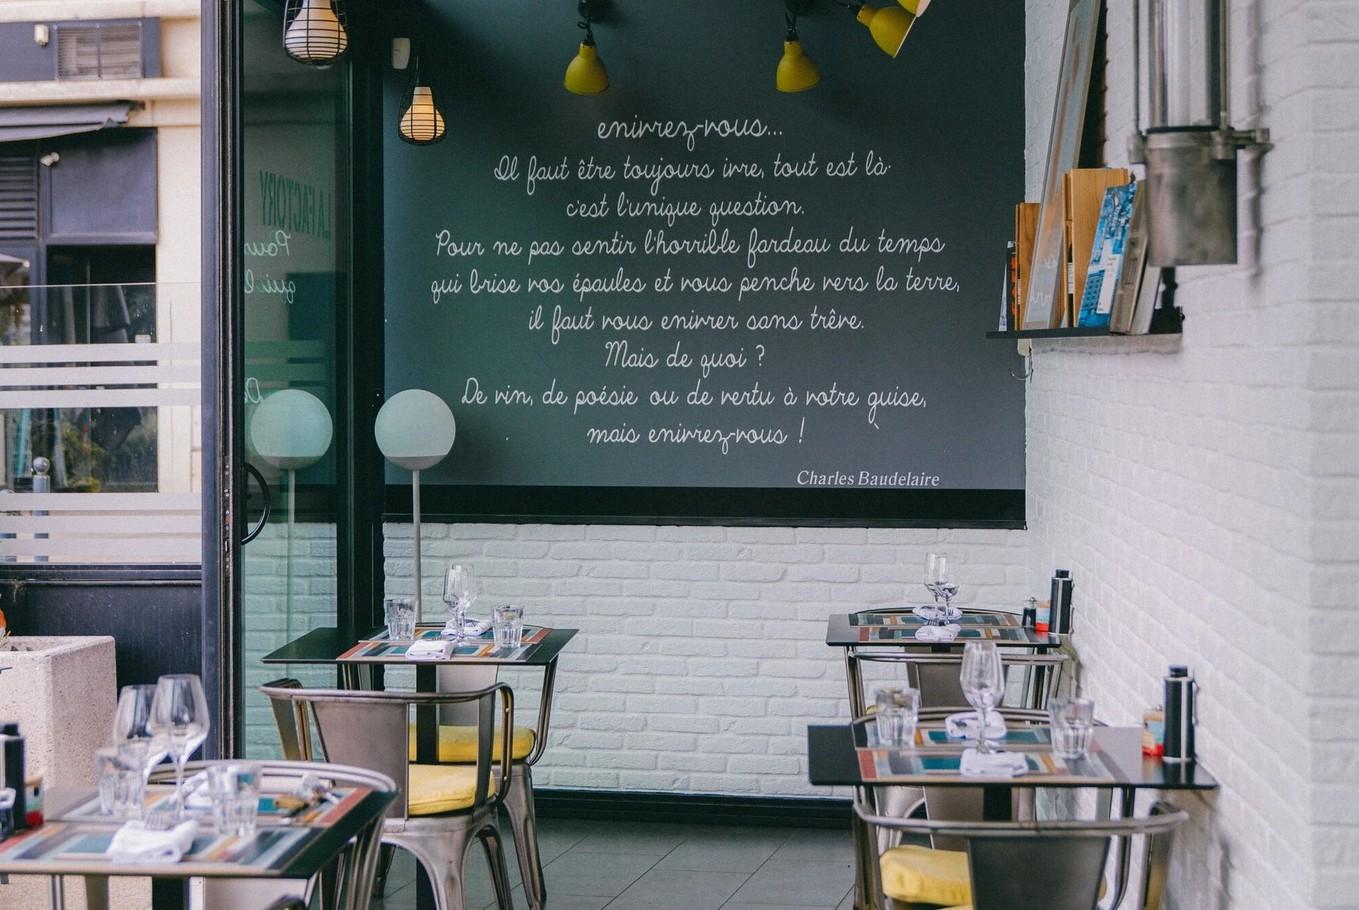 enivrez-vous...
Il faut être toujours ivre, tout est là
c'est l'unique question.
Pour ne pas sentir l'horrible fardeau du temps
qui brise vos épaules et vous penche vers la terre,
il faut vous enivrer sans trêve.
Mais de quoi ?
De vin, de poésie ou de vertu à votre guise,
mais enivrez-vous !
Charles Baudelaire
LA FACTORY
Pour
qui
De